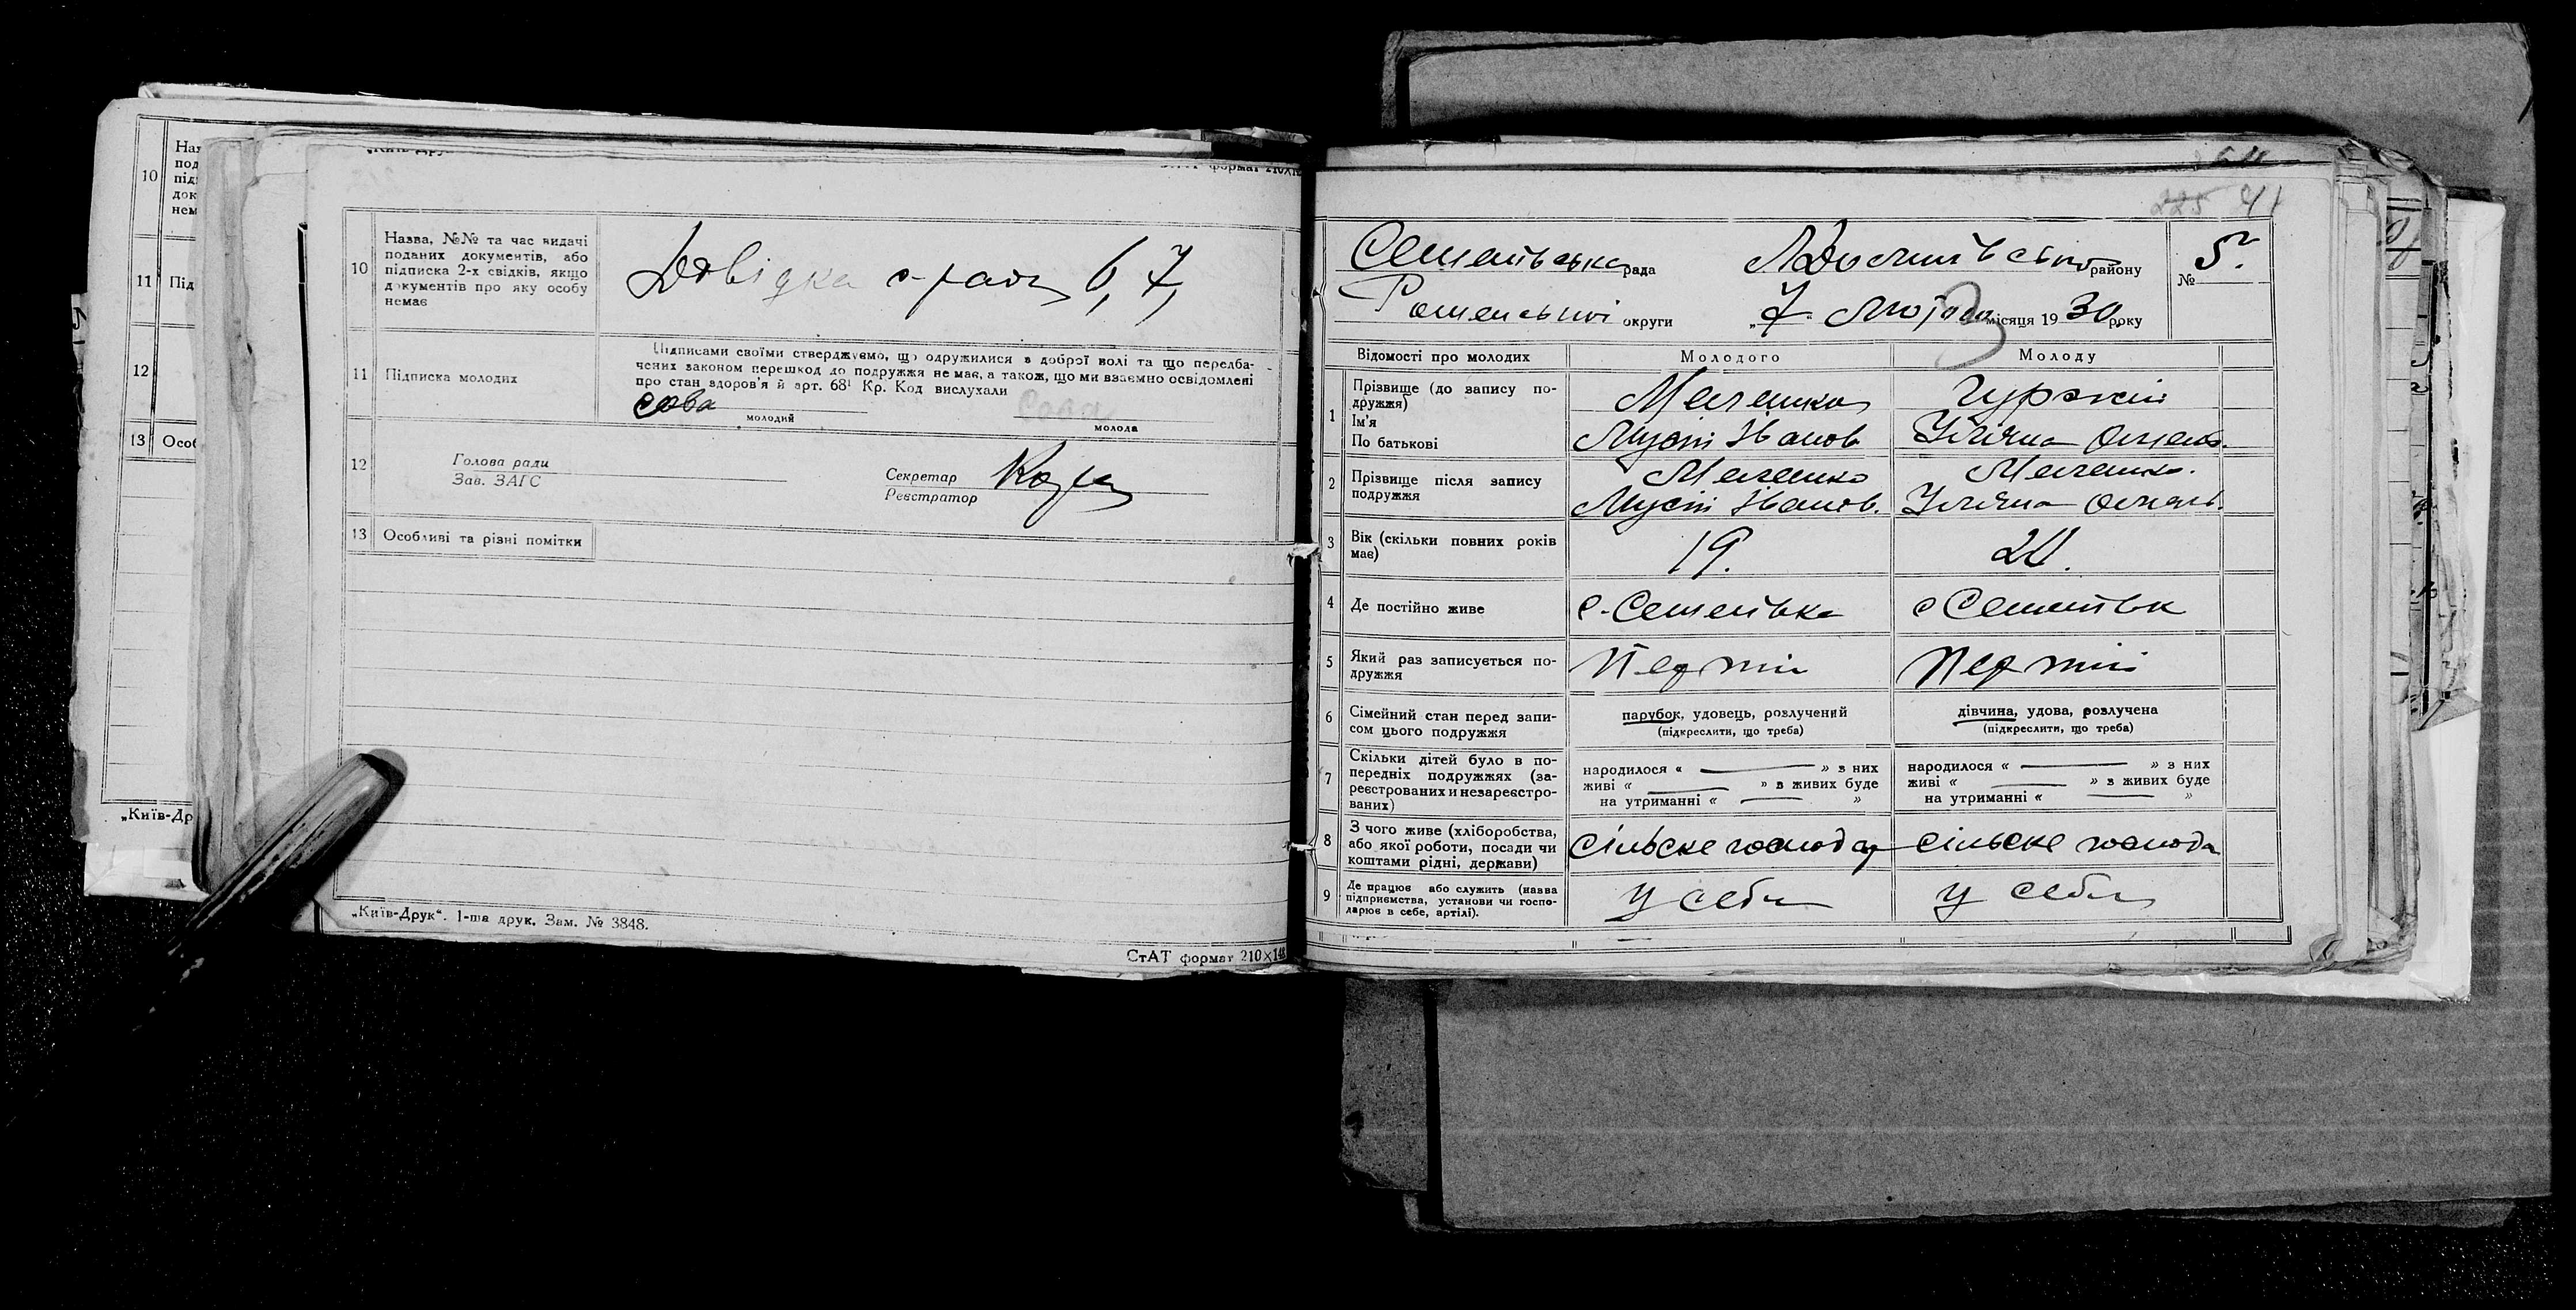 10
Назва, №№ та час видачі
поданих документів, або
підписка 2-х свідків, якщо
документів про яку особу
немає
Довідка с-ради 6, 7,
11
Підписка молодих
Підписами своїми стверджуємо, що одружилися з доброї волі та що передба-
чених законом перешкод до подружжя немає, а також, що ми взаємно освідомлені
про стан здоров'я й арт. 68¹ Кр. Код вислухали
Сова
Сова
молодий
молода
12
Голова ради
Зав. ЗАГС
Секретар
Реєстратор
13
Особливі та різні помітки
„Київ-Друк“. 1-ша друк. Зам. № 3848.
СтАТ формат 210×148
10
11 Під
12
13 Особ
„Київ-Др
225 41
Семенівська рада
району
№ 5
Роменської округи
„7“ Лютого місяця 1930 року
Відомості про молодих
Молодого
Молоду
1
Прізвище (до запису по-
дружжя)
Ім'я
По батькові
Мелешко
Гуржій
Мусій Іванов.
Уляна
2
Прізвище після запису
подружжя
Мелешко
Мелешко.
Мусій Іванов.
Уляна
3
Вік (скільки повних років
має)
19.
21.
4
Де постійно живе
с. Семенівка
с Семенівк
5
Який раз записується по-
дружжя
Перший
Перший
6
Сімейний стан перед запи-
сом цього подружжя
парубок, удовець, розлучений
(підкреслити, що треба)
дівчина, удова, розлучена
(підкреслити, що треба)
7
Скільки дітей було в по-
передніх подружжях (за-
реєстрованих и незареєстро-
ваних)
народилося « — » з них
живі « — » з живих буде
на утриманні « — »
народилося « — » з них
живі « — » з живих буде
на утриманні « — »
8
З чого живе (хліборобства,
або якої роботи, посади чи
коштами рідні, держави)
сільске господар
сільске господа
9
Де працює або служить (назва
підприємства, установи чи госпо-
дарює в себе, артілі).
у себе
у себе